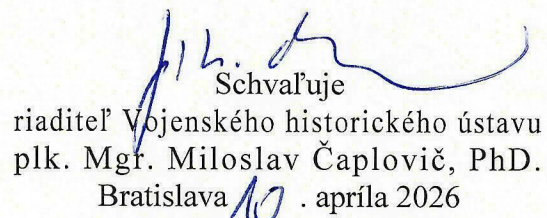 Schvaľuje
riaditeľ Vojenského historického ústavu
plk. Mgr. Miloslav Čaplovič, PhD.
Bratislava 10 . apríla 2026